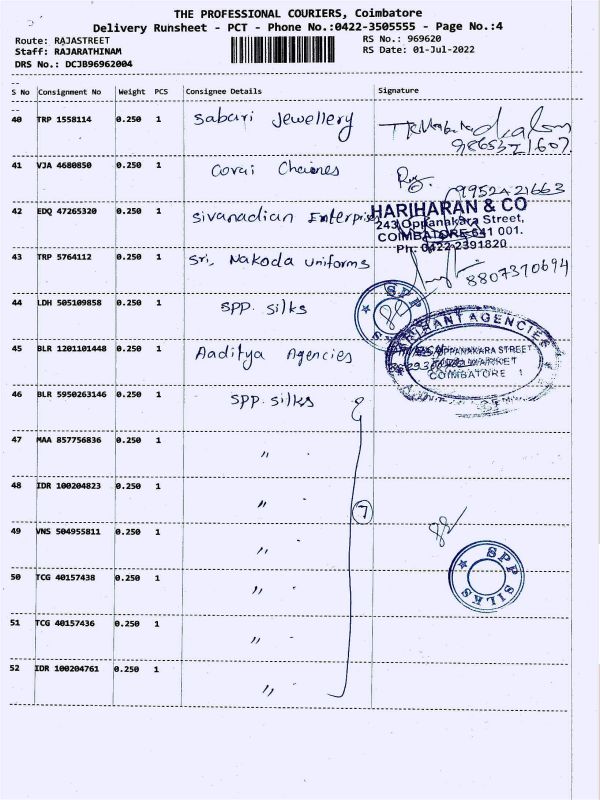 THE PROFESSIONAL COURIERS, Coimbatore
Delivery Runsheet - PCT - Phone No.:0422-3505555 - Page No.:4
Route: RAJASTREET
RS No.: 969620
Staff: RAJARATHINAM
RS Date: 01-Jul-2022
DRS No.: DCJB96962004
S No Consignment No Weight PCS Consignee Details Signature
40 TRP 1558114 0.250 1 Sabari Jewellery
9865321607
41 VJA 4680850 0.250 1 Covai
42 EDQ 47265320 0.250 1 Sivanadian Enterprise
HARIHARAN & CO
243, Oppanakara Street,
COIMBATORE-641 001.
Ph: 0422 2391820
43 TRP 5764112 0.250 1 Sri, Nakoda Uniforms
8807370694
44 LDH 505109858 0.250 1 SPP. Silks
SPP
45 BLR 1201101448 0.250 1 Aaditya Agencies
ARIHANT AGENCIES
OPPANAKARA STREET
COIMBATORE 1
46 BLR 5950263146 0.250 1 SPP. Silks
47 MAA 857756836 0.250 1 "
48 IDR 100204823 0.250 1 "
7
49 VNS 504955811 0.250 1 "
50 TCG 40157438 0.250 1 "
SPP SILKS
51 TCG 40157436 0.250 1 "
52 IDR 100204761 0.250 1 "